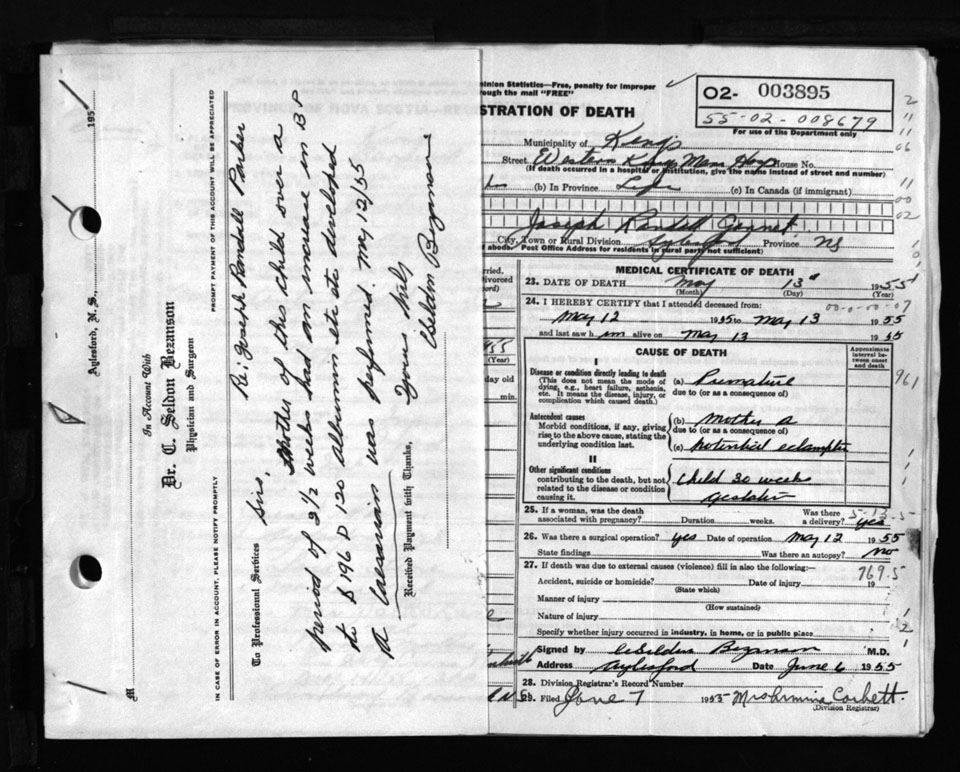 195
Aylesford, N.S.,
M
In Account With
Dr. C. Seldon Bezanson
Physician and Surgeon
PROMPT PAYMENT OF THIS ACCOUNT WILL BE APPRECIATED
IN CASE OF ERROR IN ACCOUNT, PLEASE NOTIFY PROMPTLY
Re: Joseph Randall Parker
To Professional Services
Sirs
Mother of this child over a
period of 2 1/2 weeks had an increase in B P
to S 196 D 120 albumin etc etc developed
A Caesarian was performed. May 12/55
Received Payment with Thanks,
Yours truly
C Seldon Bezanson
inion Statistics—Free, penalty for improper
ough the mail "FREE"
STRATION OF DEATH
O2- 003895
55-02-008679
For use of the Department only
Municipality of Kings
Street Western Kings Mem Hosp House No.
(If death occurred in a hospital or institution, give the name instead of street and number)
(b) In Province Life (c) In Canada (if immigrant)
Joseph Randall
City, Town or Rural Division Aylesford Province NS
Post Office Address for residents in rural parts not sufficient)
MEDICAL CERTIFICATE OF DEATH
23. DATE OF DEATH May 13 1955
(Month) (Day) (Year)
24. I HEREBY CERTIFY that I attended deceased from:
May 12 1955 to May 13 1955
and last saw h im alive on May 13 1955
CAUSE OF DEATH
Approximate interval between onset and death
I
Disease or condition directly leading to death
(This does not mean the mode of dying, e.g., heart failure, asthenia, etc. It means the disease, injury, or complication which caused death.)
(a) Premature
due to (or as a consequence of)
Antecedent causes
Morbid conditions, if any, giving rise to the above cause, stating the underlying condition last.
(b) Mother a
due to (or as a consequence of)
(c) potential eclamptic
II
Other significant conditions
contributing to the death, but not related to the disease or condition causing it.
Child 30 weeks
gestation
961
25. If a woman, was the death associated with pregnancy? Duration weeks. Was there a delivery? yes
26. Was there a surgical operation? yes Date of operation May 12 1955
State findings Was there an autopsy? no
27. If death was due to external causes (violence) fill in also the following:—
769.5
Accident, suicide or homicide? Date of injury 19
(State which)
Manner of injury
(How sustained)
Nature of injury
Specify whether injury occurred in industry, in home, or in public place
Signed by C Seldon Bezanson M.D.
Address Aylesford Date June 6 1955
28. Division Registrar's Record Number
29. Filed June 7 1955 Mrs Armina Corbett
(Division Registrar)